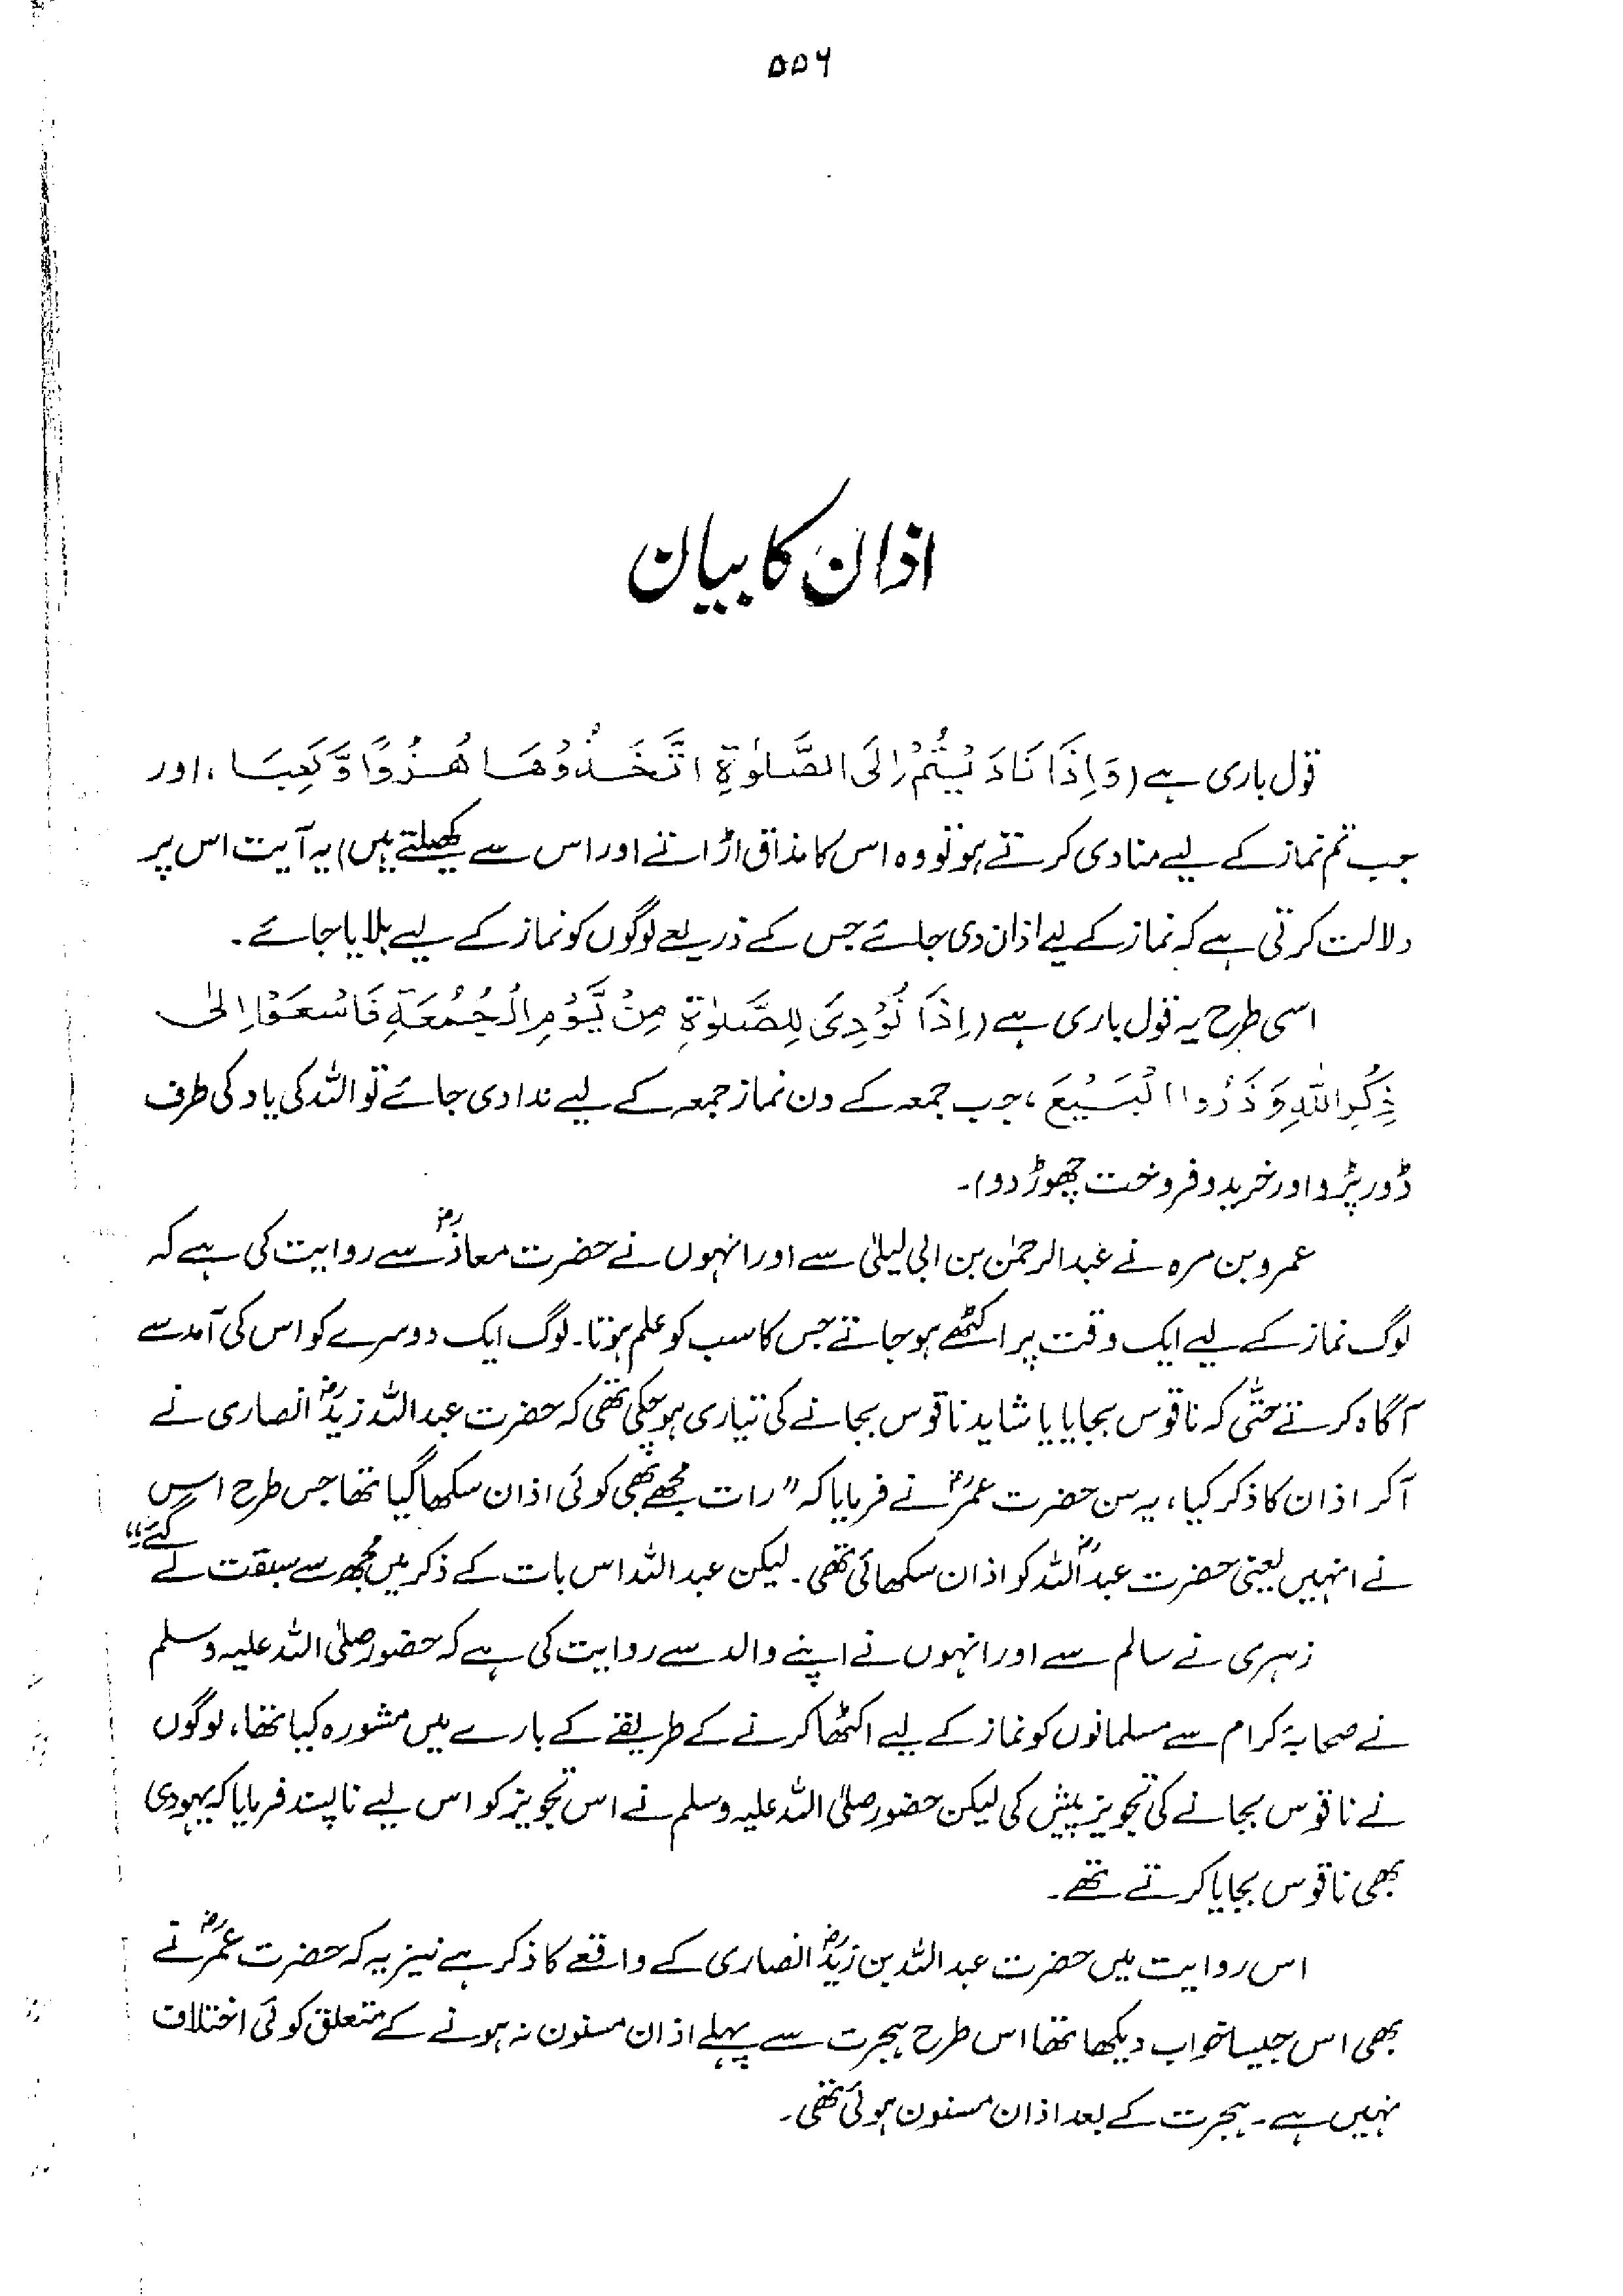 ۵۵۶
اذان کا بیان
قول باری ہے (وَاِذَا نَادَيْتُمْ اِلَى الصَّلٰوةِ اتَّخَذُوْهَا هُزُوًا وَّلَعِبًا ، اور
جب تم نماز کے لیے منادی کرتے ہو تو وہ اس کا مذاق اڑاتے اور اس سے کھیلتے ہیں) یہ آیت اس پر
دلالت کرتی ہے کہ نماز کے لیے اذان دی جائے جس کے ذریعے لوگوں کو نماز کے لیے بلایا جائے۔
اسی طرح یہ قول باری ہے (اِذَا نُوْدِىَ لِلصَّلٰوةِ مِنْ يَّوْمِ الْجُمُعَةِ فَاسْعَوْا اِلٰى
ذِكْرِ اللّٰهِ وَذَرُوا الْبَيْعَ ، جب جمعہ کے دن نماز جمعہ کے لیے ندا دی جائے تو اللہ کی یاد کی طرف
دوڑ پڑو اور خرید و فروخت چھوڑ دو)۔
عمرو بن مرہ نے عبدالرحمٰن بن ابی لیلیٰ سے اور انہوں نے حضرت معاذؓ سے روایت کی ہے کہ
لوگ نماز کے لیے ایک وقت پر اکٹھے ہو جاتے جس کا سب کو علم ہوتا۔ لوگ ایک دوسرے کو اس کی آمد سے
آگاہ کرتے حتّٰی کہ ناقوس بجایا یا شاید ناقوس بجانے کی تیاری ہو چکی تھی کہ حضرت عبداللہ زیدؓ انصاری نے
آکر اذان کا ذکر کیا، یہ سن حضرت عمرؓ نے فرمایا کہ "رات مجھے بھی کوئی اذان سکھا گیا تھا جس طرح اس
نے انہیں یعنی حضرت عبداللہؓ کو اذان سکھائی تھی۔ لیکن عبداللہ اس بات کے ذکر میں مجھ سے سبقت لے گئے"
زہری نے سالم سے اور انہوں نے اپنے والد سے روایت کی ہے کہ حضور صلی اللہ علیہ وسلم
نے صحابۂ کرام سے مسلمانوں کو نماز کے لیے اکٹھا کرنے کے طریقے کے بارے میں مشورہ کیا تھا، لوگوں
نے ناقوس بجانے کی تجویز پیش کی لیکن حضور صلی اللہ علیہ وسلم نے اس تجویز کو اس لیے ناپسند فرمایا کہ یہودی
بھی ناقوس بجایا کرتے تھے۔
اس روایت میں حضرت عبداللہ بن زیدؓ انصاری کے واقعے کا ذکر ہے نیز یہ کہ حضرت عمرؓ نے
بھی اس جیسا خواب دیکھا تھا اس طرح ہجرت سے پہلے اذان مسنون نہ ہونے کے متعلق کوئی اختلاف
نہیں ہے۔ ہجرت کے بعد اذان مسنون ہوئی تھی۔